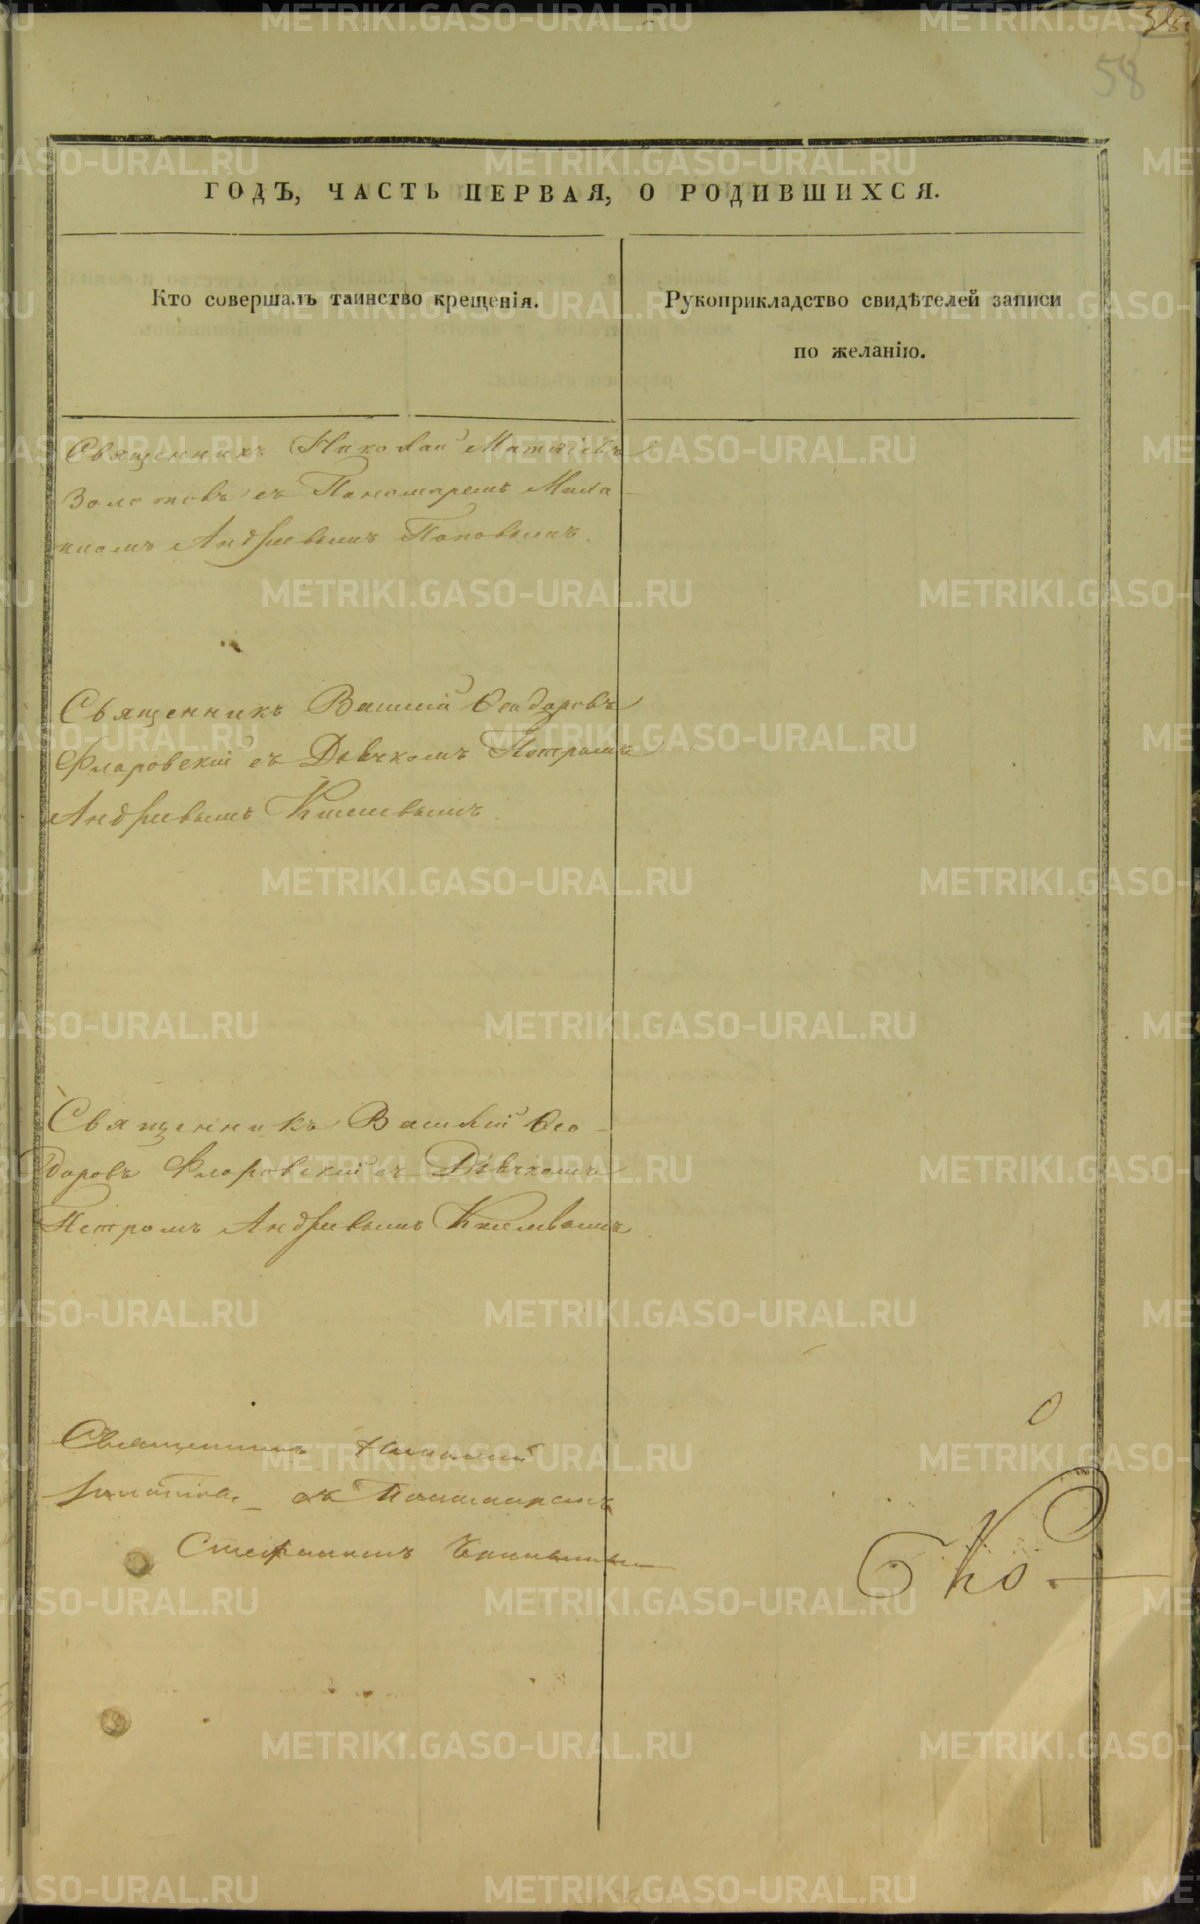 58
ГОДЪ, ЧАСТЬ ПЕРВАЯ, О РОДИВШИХСЯ.
Кто совершалъ таинство крещенія.
Рукоприкладство свидѣтелей записи
по желанію.
Священникъ Николай Матѳіевъ
Золотовъ съ Пономаремъ
Андреевымъ Поповымъ.
Священникъ Василій Ѳеодоровъ
Флоровскій съ Дьячкомъ Петромъ
Андреевымъ
Священникъ Василій Ѳео-
доровъ Флоровскій съ Дьячкомъ
Петромъ Андреевымъ
Священникъ Николай
Золотовъ съ Пономаремъ
Стефаномъ
METRIKI.GASO-URAL.RU